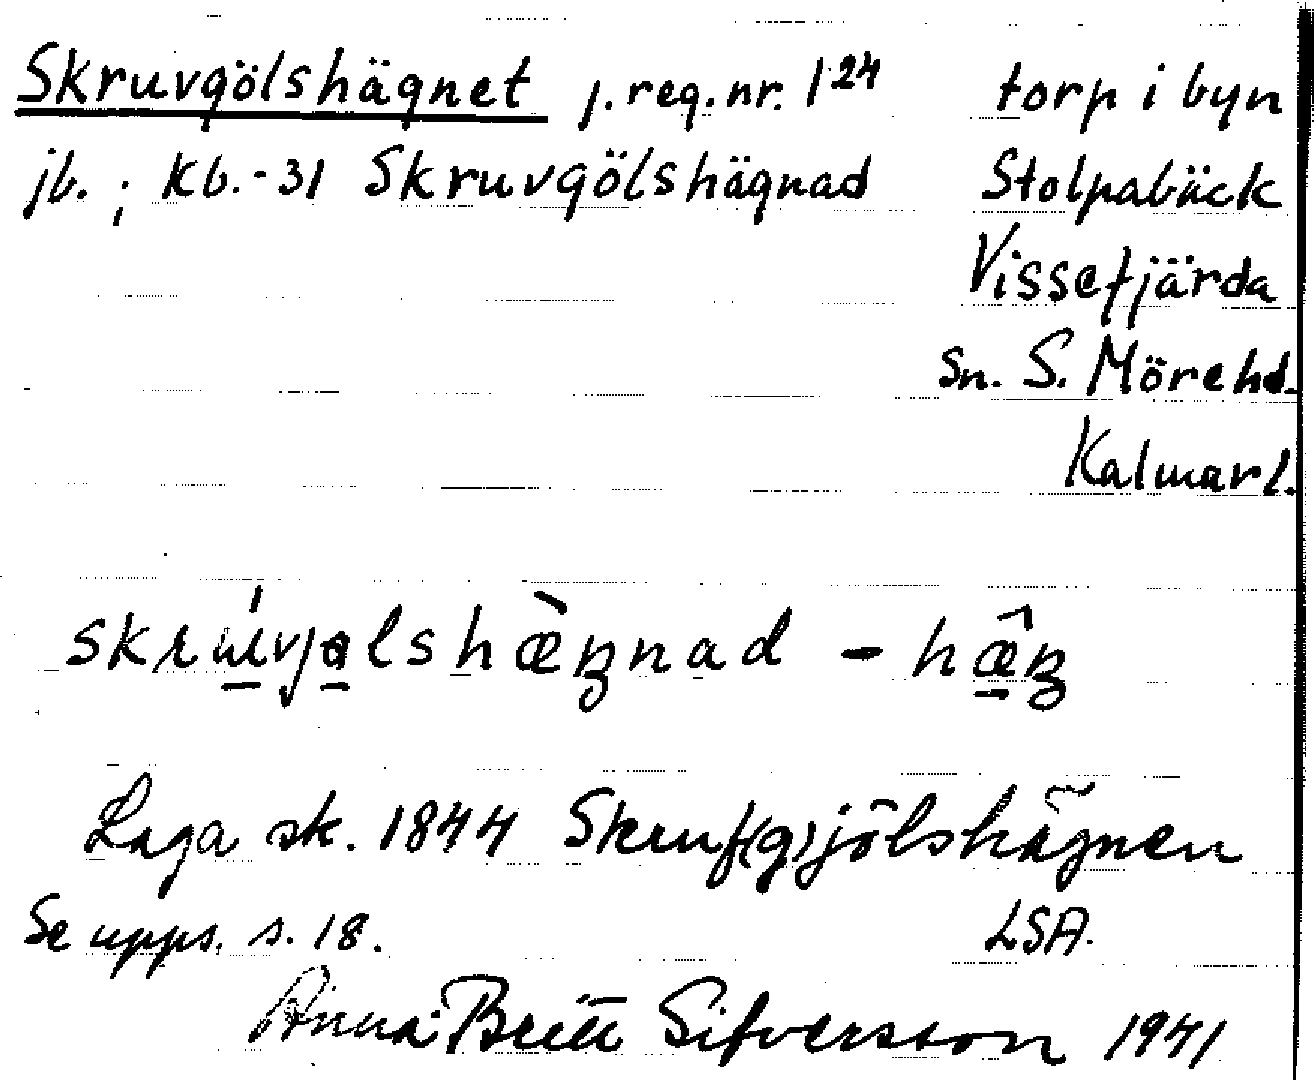 Skruvgölshägnet j. reg. nr. 1²⁴ torp i byn
jb. ; Kb.-31 Skruvgölshägnad Stolpabäck
Vissefjärda
Sn. S. Möre hd.
Kalmar l.
-
Laga sk. 1844 Skruf(g)jölshägnen
Se upps. s. 18. LSA.
Anna-Britt Sifversson 1941